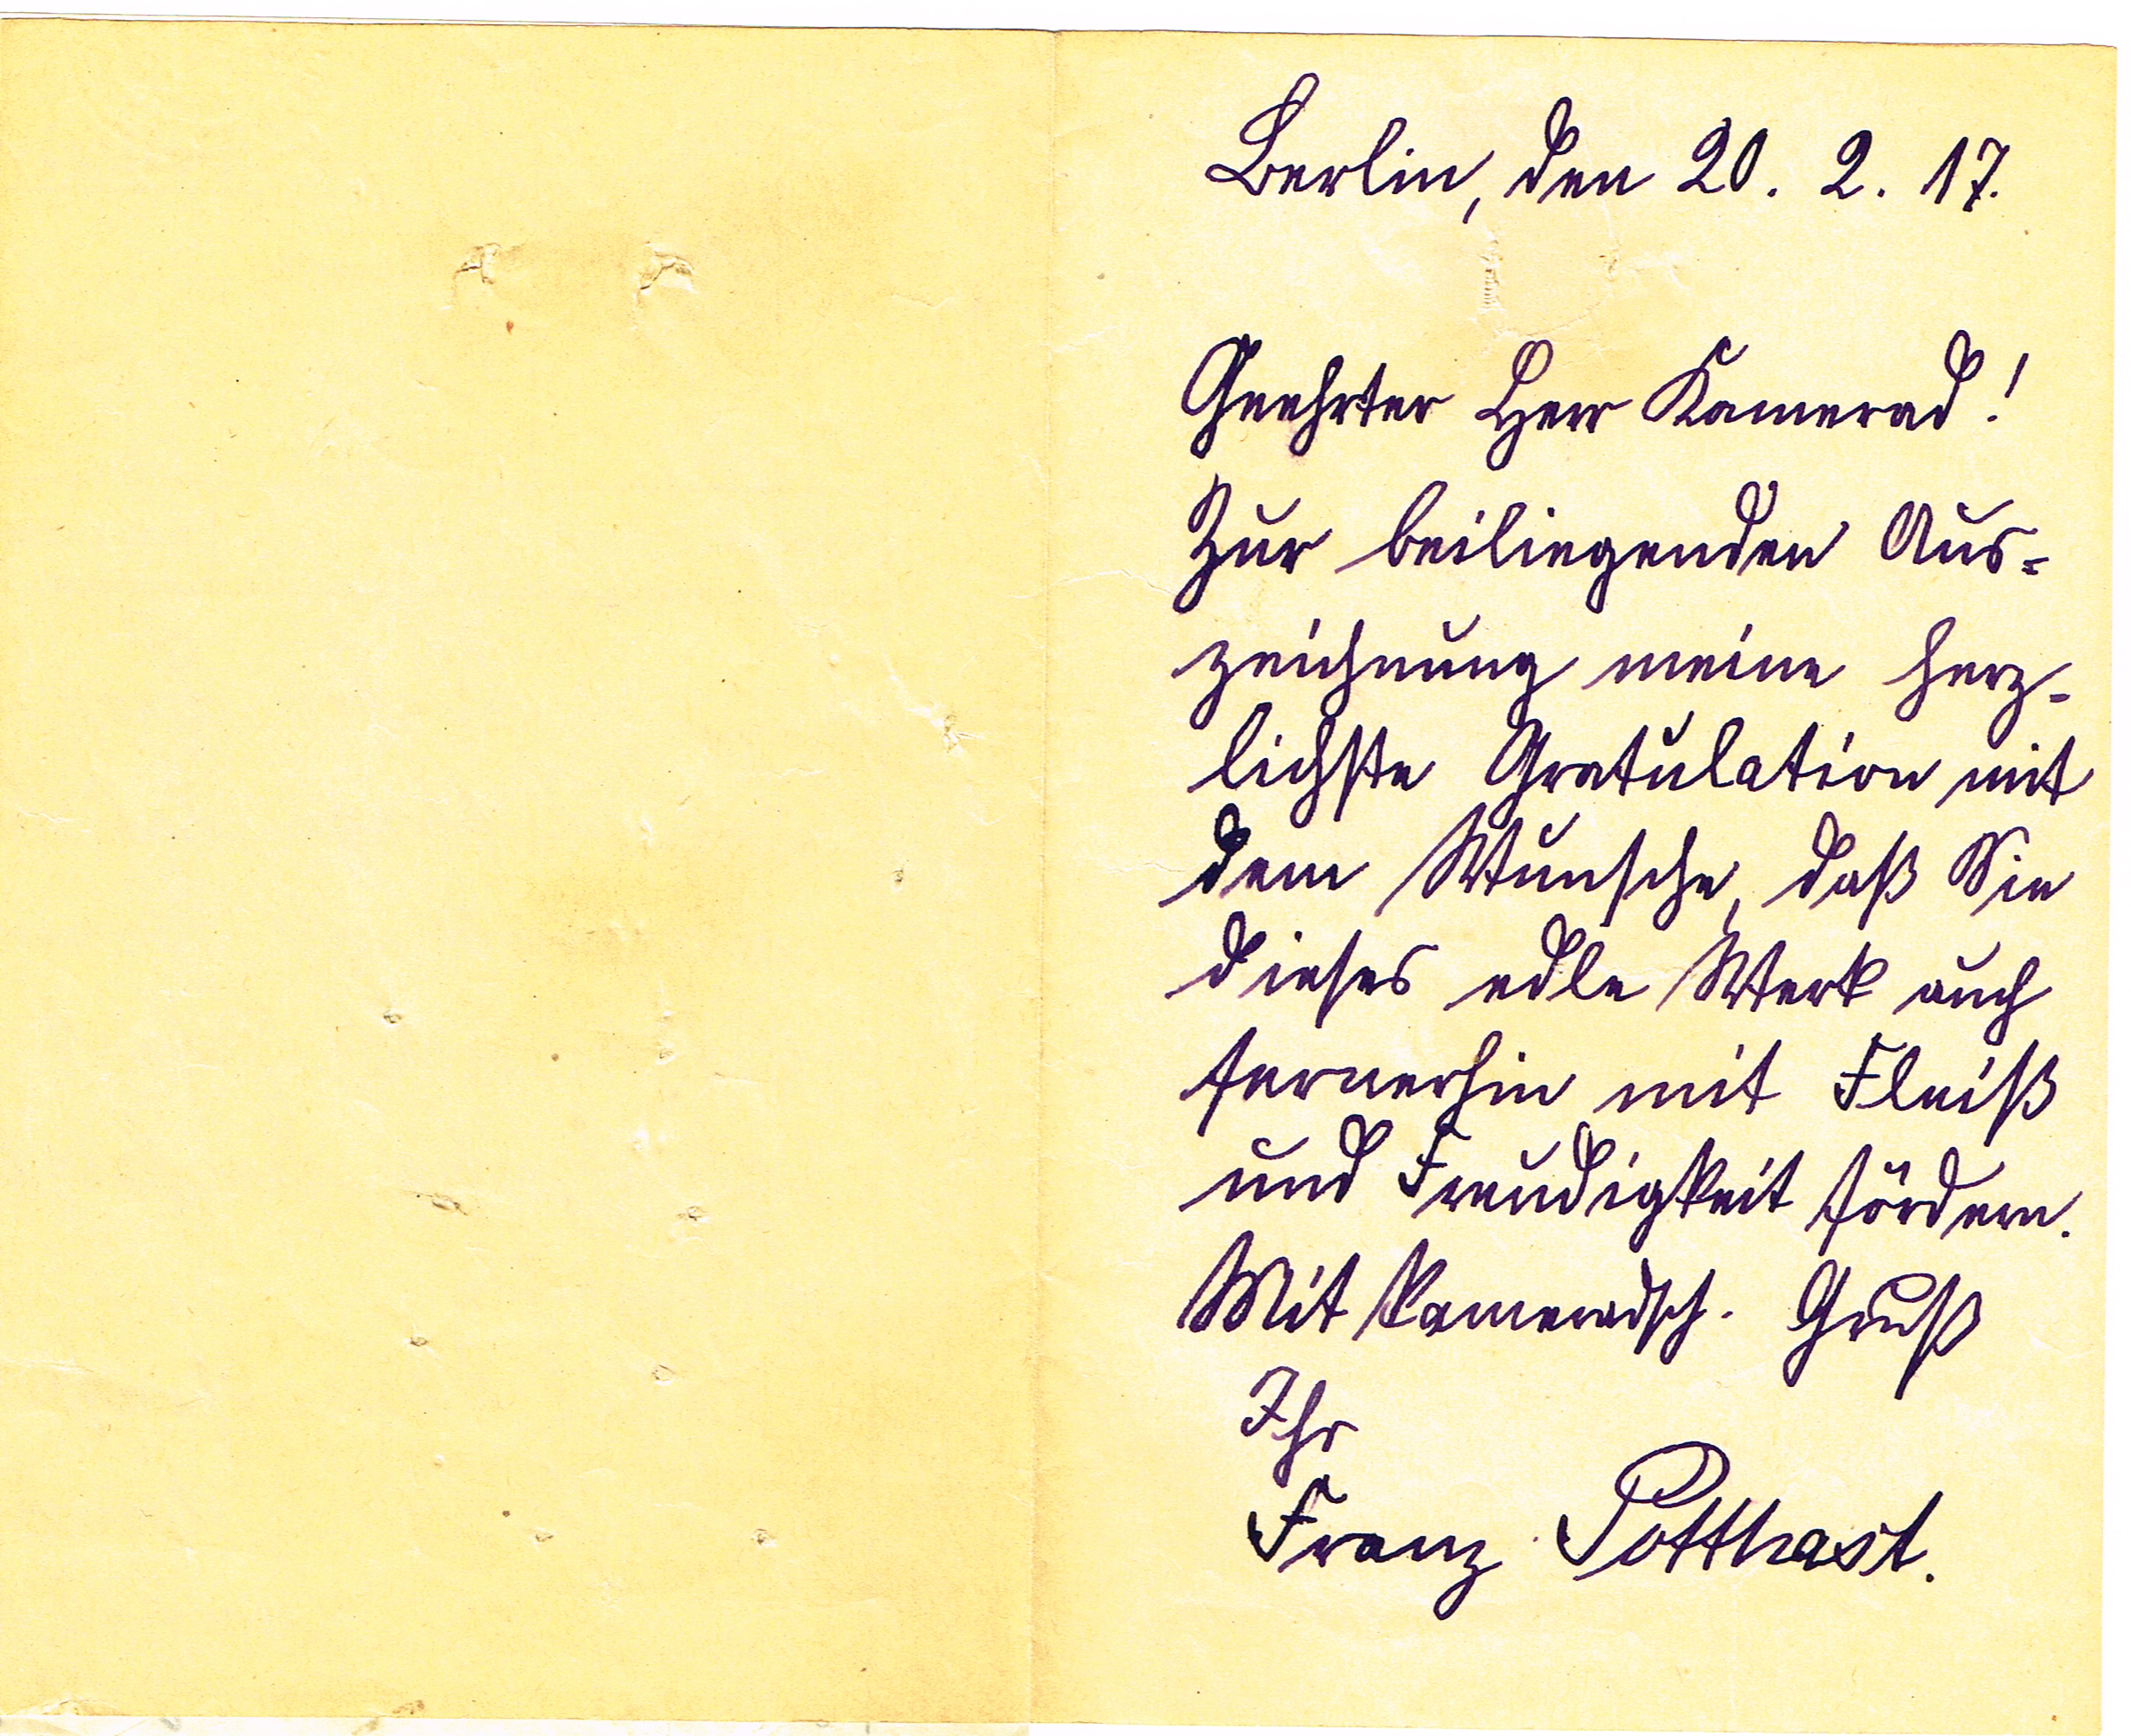 Berlin, den 20. 2. 17.
Geehrter Herr Kamerad!
Zur beiliegenden Aus=
zeichnung meine herz=
lichste Gratulation mit
dem Wunsche, daß Sie
dieses edle Werk auch
fernerhin mit Fleiß
und Freudigkeit fördern.
Mit kameradsch. Gruß
Ihr
Franz Potthast.